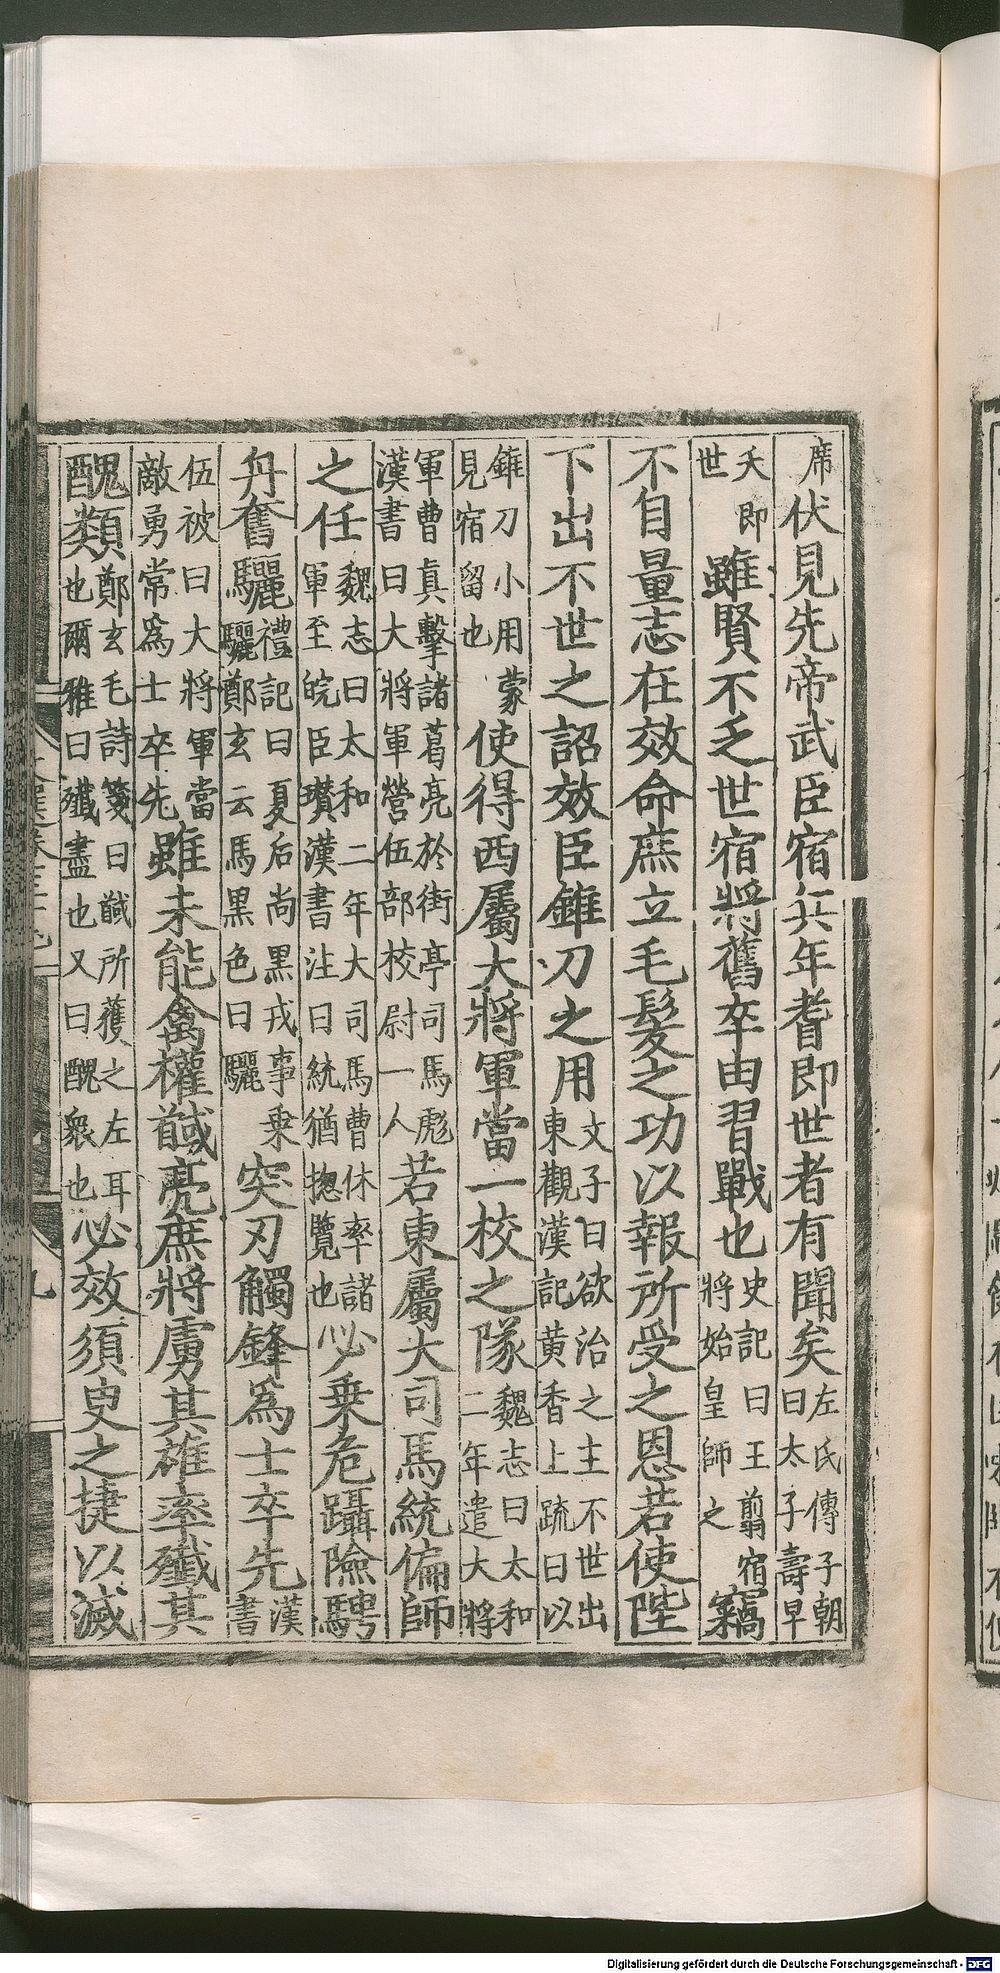 席伏見先帝武臣宿兵年耆即世者有聞矣左氏傳子朝曰太子壽早
夭即世雖賢不乏世宿將舊卒由習戰也史記曰王翦宿將始皇師之竊
不自量志在效命庶立毛髮之功以報所受之恩若使陛
下出不世之詔效臣錐刀之用文子曰欲治之主不世出東觀漢記黄香上疏曰以
錐刀小用蒙見宿留也使得西屬大將軍當一校之隊魏志曰太和二年遣大將
軍曹真擊諸葛亮於街亭司馬彪漢書曰大將軍營伍部校尉一人若東屬大司馬統偏師
之任魏志曰太和二年大司馬曹休率諸軍至皖臣瓚漢書注曰統猶揔覽也必乗危躡險騁
舟奮驪禮記曰夏后尚黒戎事乗驪鄭玄云馬黒色曰驪突刃觸鋒爲士卒先漢書
伍被曰大將軍當敵勇常爲士卒先雖未能禽權馘亮庶將虜其雄率殲其
醜類鄭玄毛詩箋曰馘所獲之左耳也爾雅曰殲盡也又曰醜衆也必效須臾之捷以滅
九
Digitalisierung gefördert durch die Deutsche Forschungsgemeinschaft - DFG